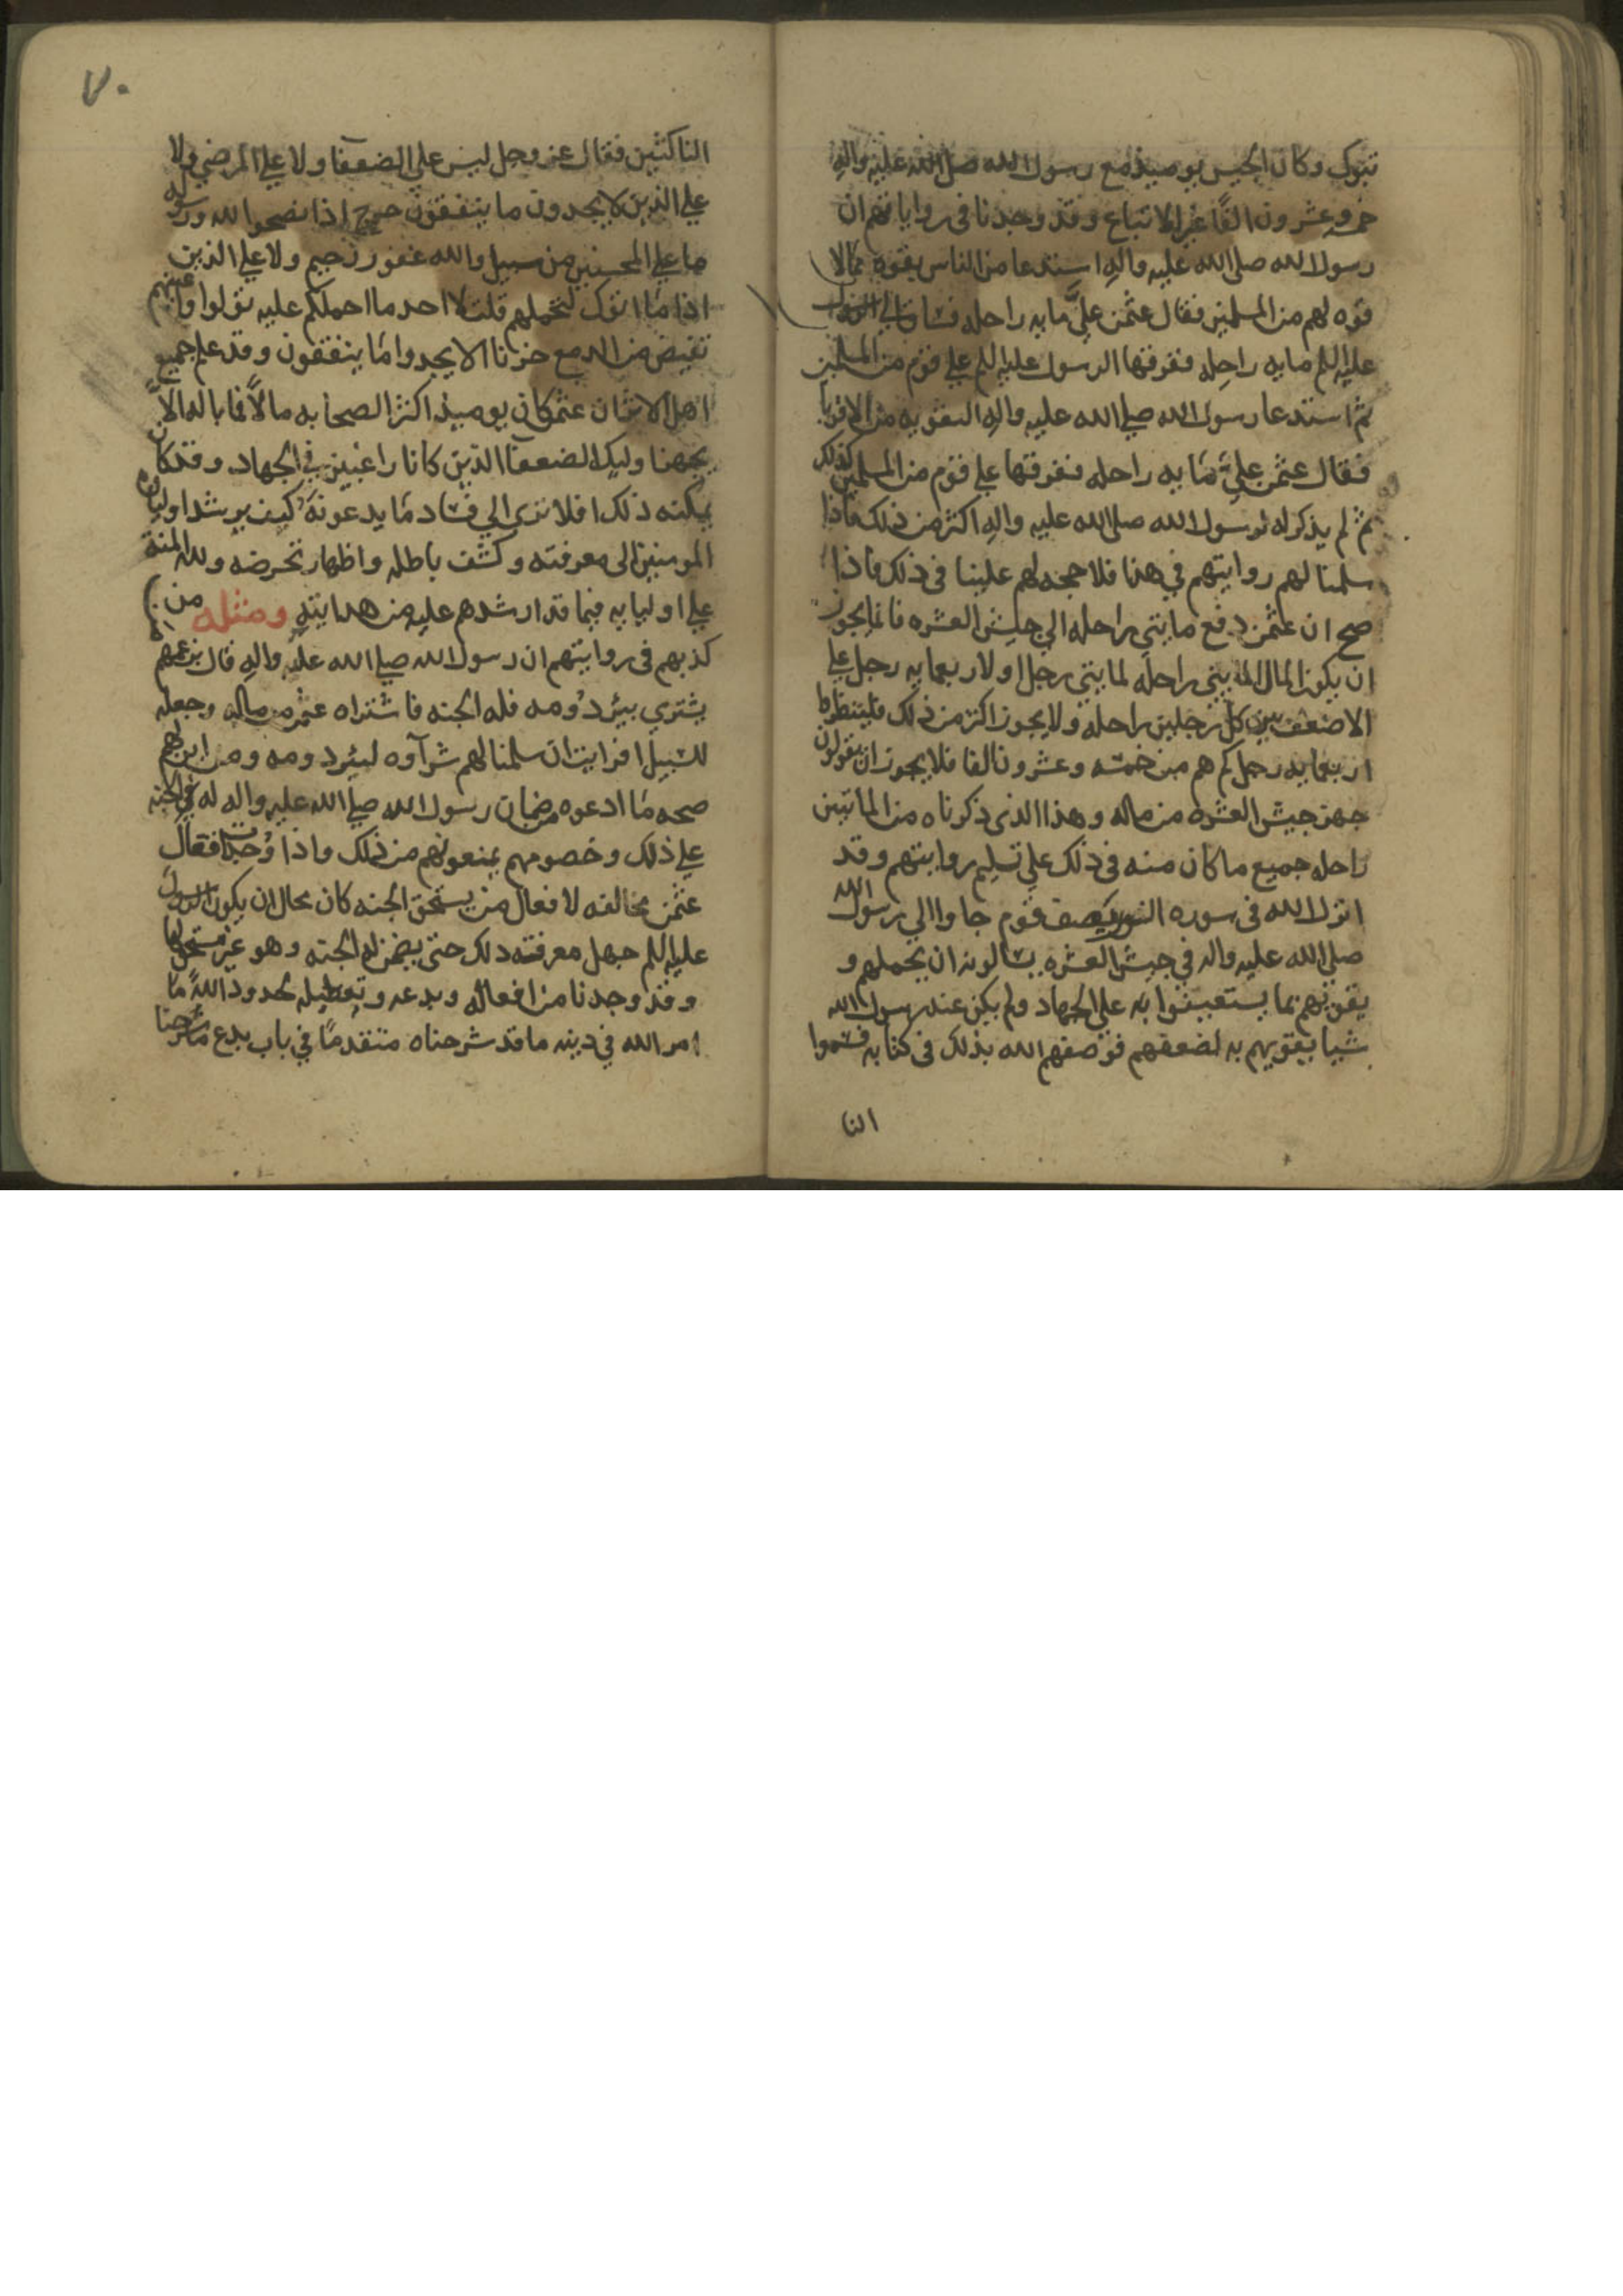 تبوك وكان الجيش يوميذ مع رسول الله صلى الله عليه واله
خمسه وعشرون الفًا غير الاتباع وقد وجدنا في رواياتهم ان
رسول الله صلى الله عليه واله استدعا من الناس يقوه بمالا
قوه لهم من المسلمين فقال عثمن عليَّ مايه راحله فساق الى الرسول
عليه السلم مايه راحله ففرقها الرسول عليه السلم على قوم من المسلمين
ثم استدعا رسول الله صلى الله عليه واله التقويه من الاقويا
فقال عثمن علي مايه راحله ففرقها على قوم من المسلمين كذلك
ثم لم يذكر له لرسول الله صلى الله عليه واله اكثر من ذلك فاذا
سلمنا لهم روايتهم في هذا فلا حجه لهم علينا في ذلك فاذا
صح ان عثمن دفع مايتي راحله الى جيش العشره فانما يجوز
ان يكون المال المايتي راحله لمايتي رجل اولاربعمايه رجل على
الاضعف بين كل رجلين راحله ولا يجوز اكثر من ذلك فلينظروا
اربعمايه رجل كم هم من خمسه وعشرون الفا فلا يجوز ان يقولون
جهز جيش العشره من ماله وهذا الذي ذكرناه من الماتين
راحله جميع ما كان منه في ذلك على تسليم روايتهم وقد
انزل الله في سوره يصف قوم جاوا الى رسول الله
صلى الله عليه واله في جيش العشره يسالونه ان يحملهم و
يقويهم بما يستعينوا به على الجهاد ولم يكن عند رسول الله
شيا يقويهم به لضعفهم فوصفهم الله بذلك في كتابه فسموا
النا
٧٠
الناكثين فقال عز وجل ليس على الضعفا ولا على المرضى ولا
على الذين لا يجدون ما ينفقون حرج اذا نصحوا لله ورسوله
ما على المحسنين من سبيل والله غفور رحيم ولا على الذين
اذا ما اتوك لتحملهم قلت لا احد ما احملكم عليه تولوا واعينهم
تفيض من الدمع حزنا الا يجدوا ما ينفقون وقد علم جميع
اهل الاثر ان عثمن كان يوميذ اكثر الصحابه مالًا فما باله الّا
يجهز اوليك الضعفا الذين كانا راغبين في الجهاد وقد كان
يمكنه ذلك افلا ترى الى فساد ما يدعونه كيف يرشد اولياه
المومنين الى معرفته وكشف باطله واظهار تخرصه ولله المنة
على اوليايه فيما قد ارشدهم عليه من هدايته ومثله من
كذبهم في روايتهم ان رسول الله صلى الله عليه واله قال بزعمهم
يشتري بيئر دُومه فله الجنه فاشتراه عثمن من ماله وجعله
للسبيل افرايت ان سلمنا لهم شرآوه لبئر دومه ومن اين لهم
صحه ما ادعوه من ضمان رسول الله صلى الله عليه واله له في الجنه
على ذلك وخصومهم يمنعونهم من ذلك واذا وُجدت افعال
عثمن مخالفه لافعال من يستحق الجنه كان محال ان يكون الرسول
عليه السلم جهل معرفته ذلك حتى يضمن له الجنه وهو غير مستحق لها
وقد وجدنا من افعاله وبدعه وتعطيله لحدود الله ما
امر الله في دينه ما قد شرحناه متقدمًا في باب بدع ما شرحنا